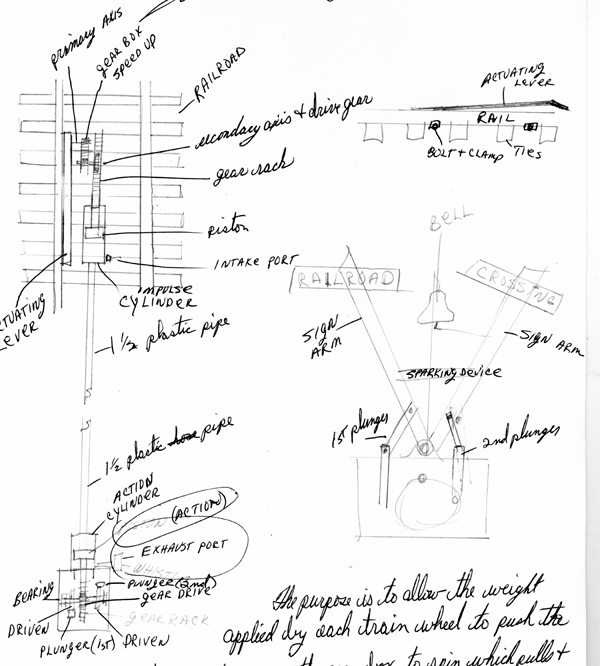 primary AXIS
GEAR BOX
SPEED UP
RAILROAD
secondary axis + drive gear
gear rack
piston
INTAKE PORT
IMPULSE
CYLINDER
ACTUATING
LEVER
1 1/2 plastic pipe
1 1/2 plastic hose pipe
ACTION
CYLINDER
(ACTION)
EXHAUST PORT
PLUNGER (2nd)
BEARING
GEAR DRIVE
DRIVEN
GEAR RACK
PLUNGER (1st) DRIVEN
ACTUATING
LEVER
RAIL
BOLT + CLAMP
TIES
BELL
RAILROAD
CROSSING
SIGN
ARM
SIGN ARM
SPARKING DEVICE
1st plunger
2nd plunger
The purpose is to allow the weight
applied by each train wheel to push the
to spin which pulls +